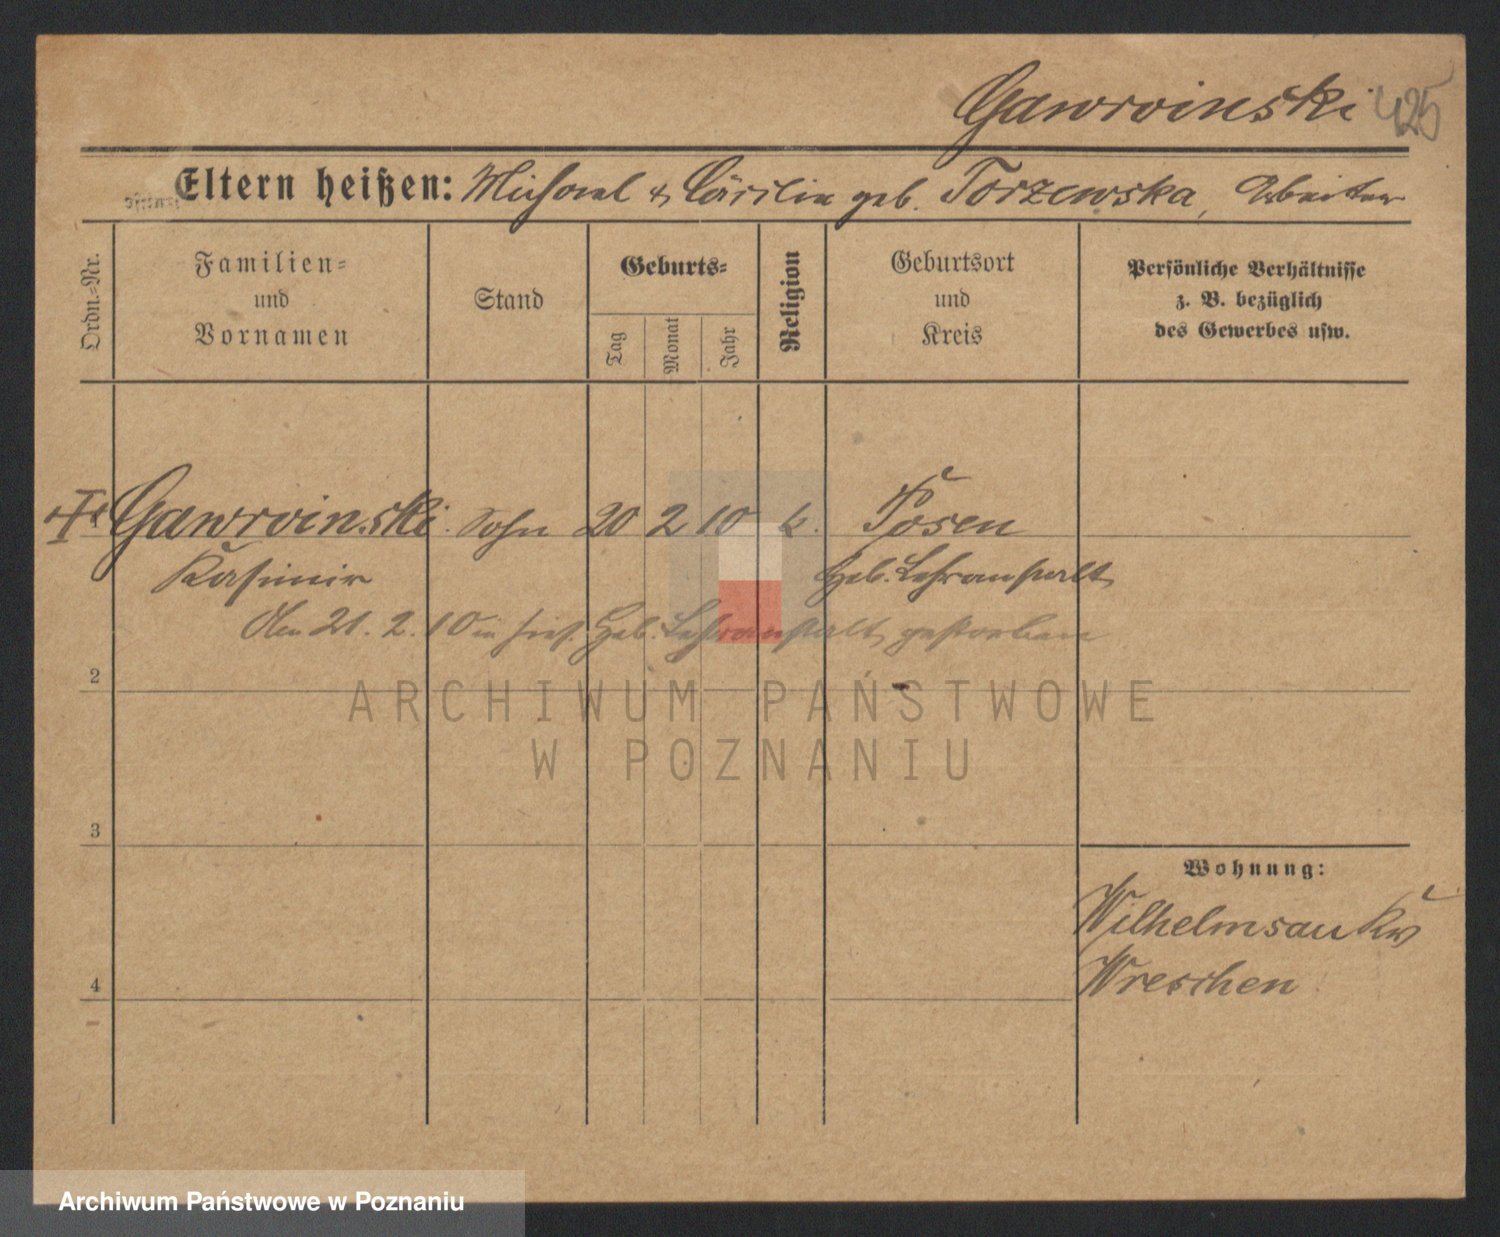 Gawrvinski 425
Eltern heißen: Michael & Cäcilia geb. Torzewska, Arbeiter
Ordn.-Nr.
Familien-
und
Vornamen
Stand
Geburts-
Tag
Monat
Jahr
Religion
Geburtsort
und
Kreis
Persönliche Verhältnisse
z. B. bezüglich
des Gewerbes usw.
Gawrvinski Sohn 20 2 10 k. Posen
Kasimir Heb. Lehranstalt
Am 21. 2. 10 in hies. Heb. Lehranstalt gestorben
2
ARCHIWUM PAŃSTWOWE
W POZNANIU
3
Wohnung:
Wilhelmsau Kr
Wreschen
4
Archiwum Państwowe w Poznaniu